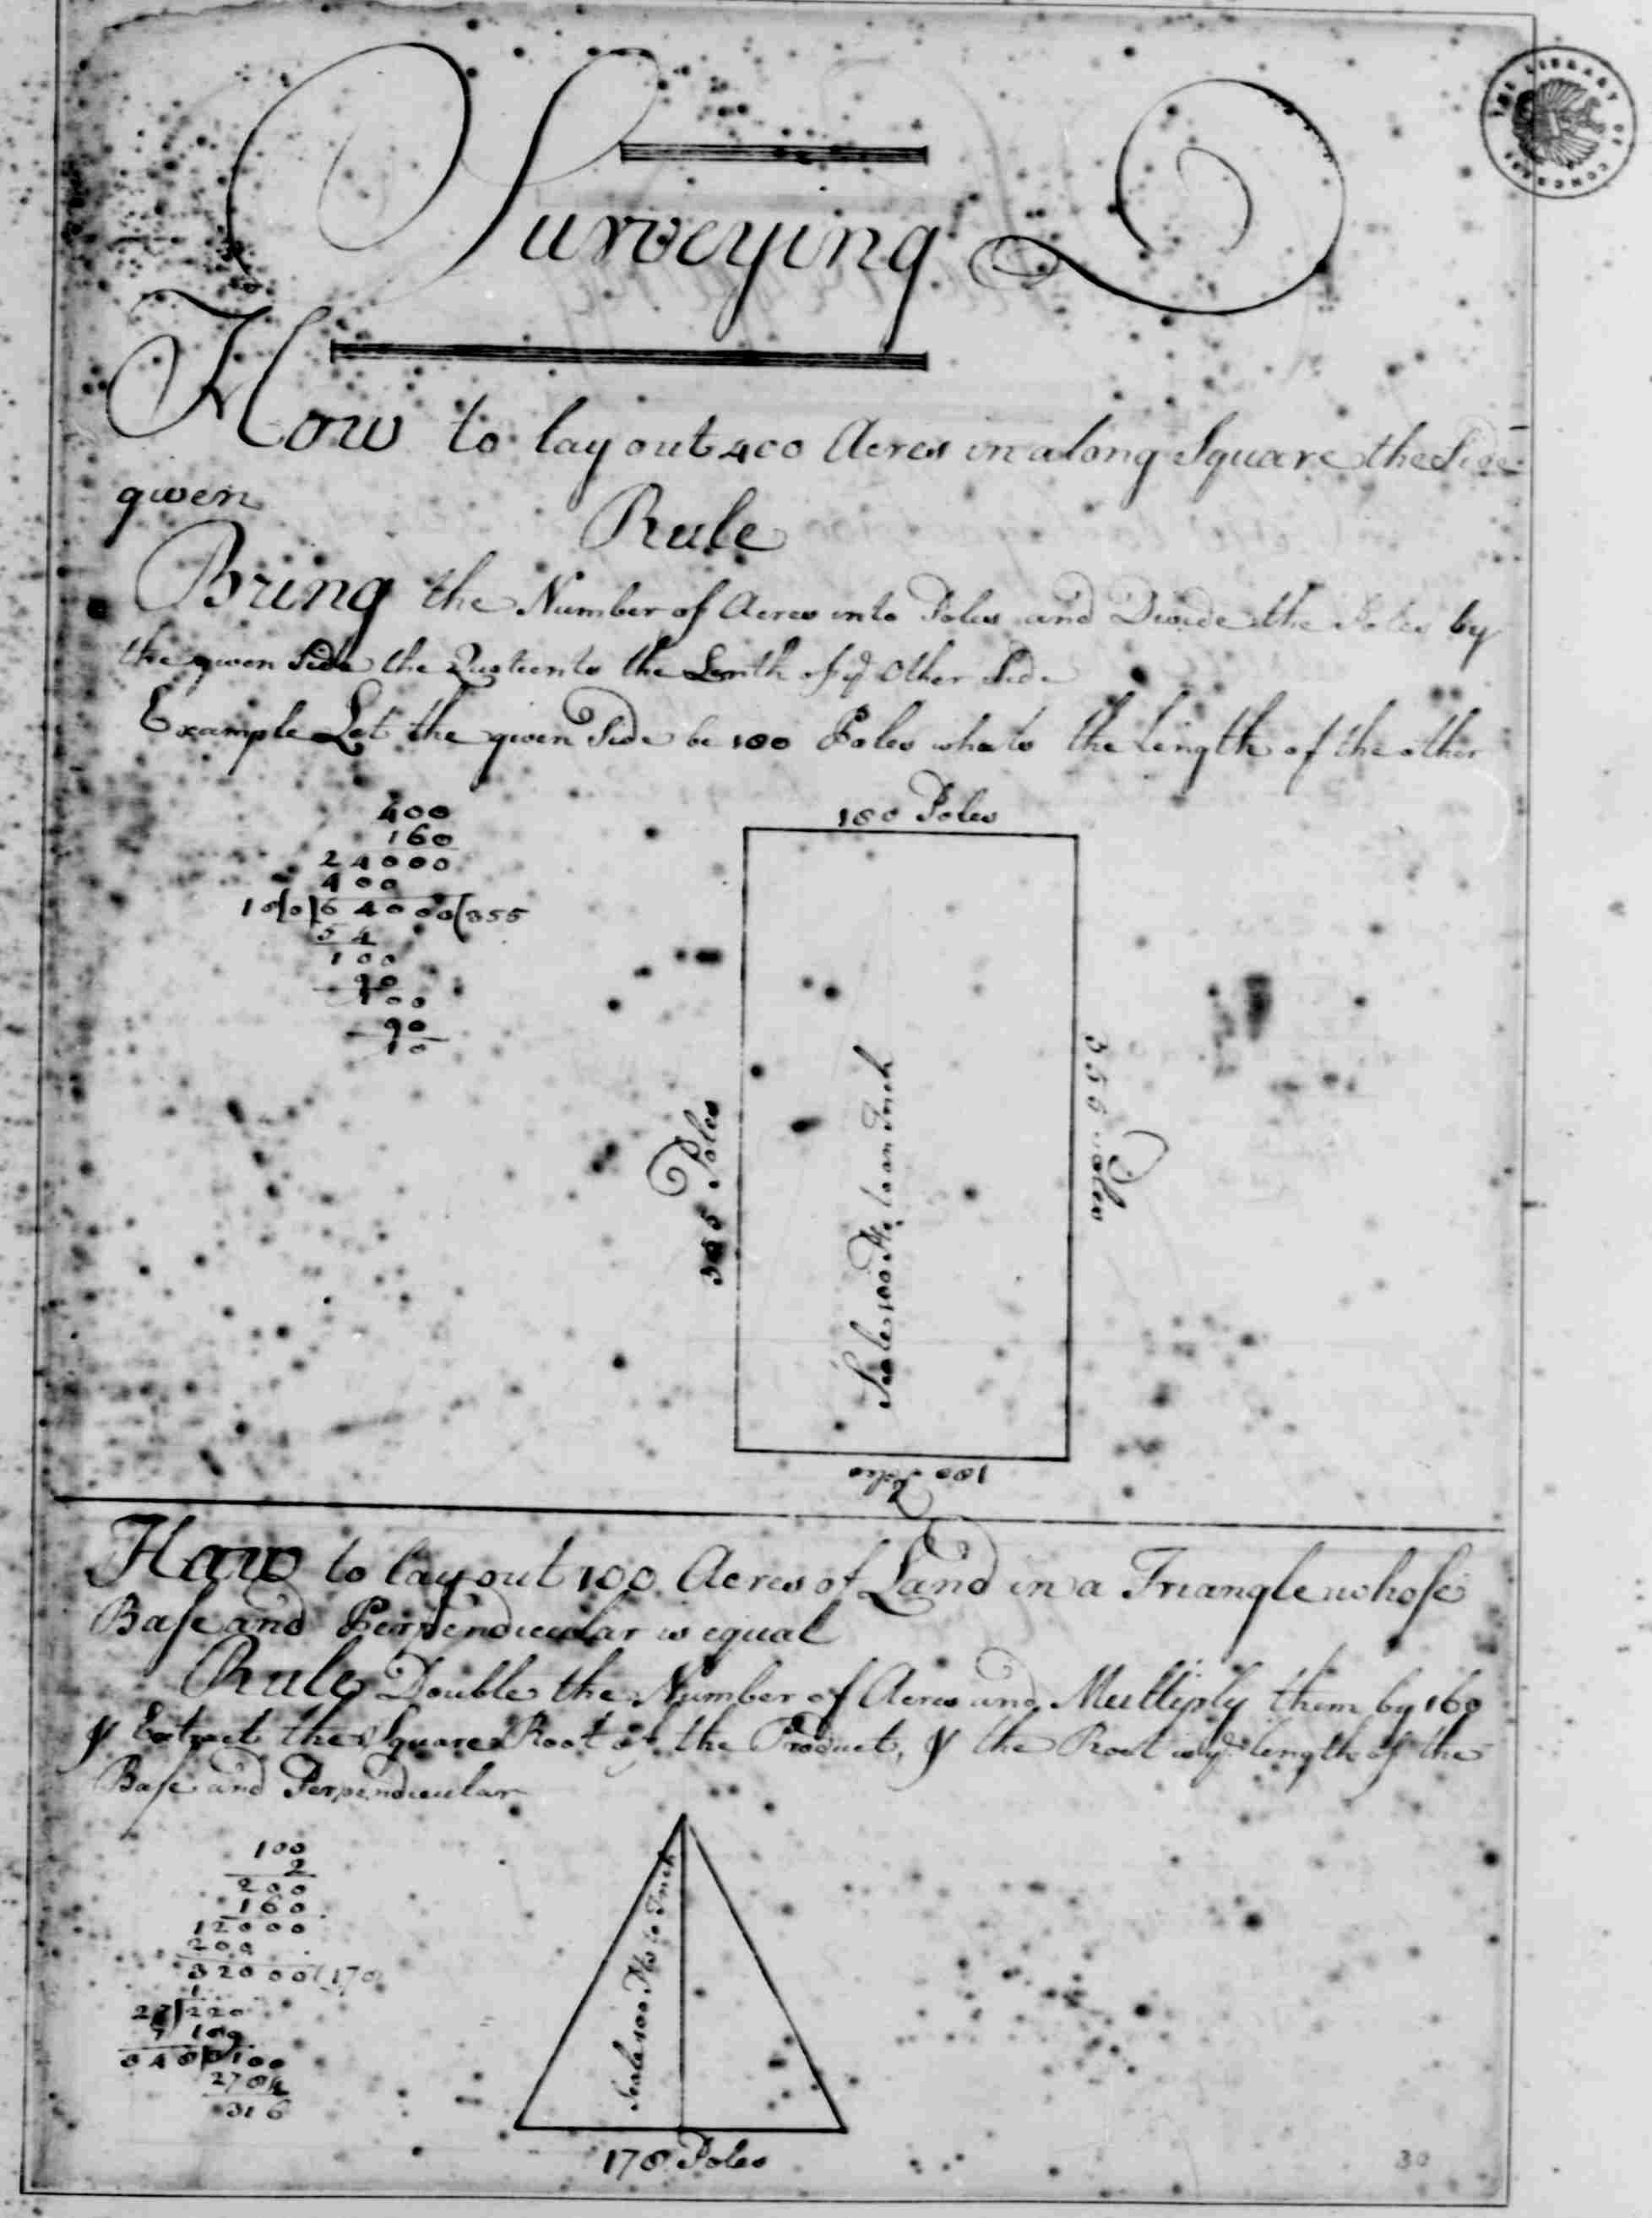 THE LIBRARY OF CONGRESS
Surveying
How to lay out 400 Acres in a long Square the Side
given
Rule
Bring the Number of Acres into Poles and Divide the Poles by
the given Side the Quotient is the Lenth of ye Other Side
Example Let the given Side be 180 Poles what is the length of the other
400
160
24000
400
18|0|64000(355
54
100
90
100
90
10
180 Poles
355 Poles
Scale 100 Po to an Inch
355 Poles
180 Poles
How to lay out 100 Acres of Land in a Triangle whose
Base and Perpendicular is equal
Rule Double the Number of Acres and Multiply them by 160
& Extract the Square Root of the Product, & the Root is ye length of the
Base and Perpendicular
100
2
200
160
12000
200
32000(178
1
27|220
7 189
348|3100
2784
316
Scale 100 Po to Inch
178 Poles
30